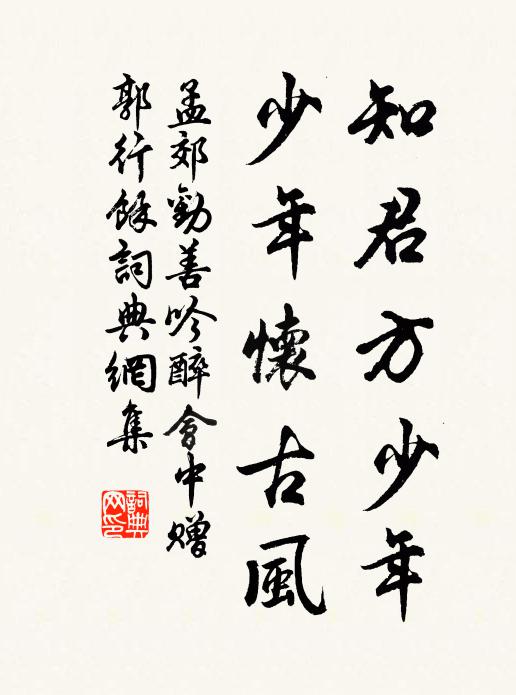 知君方少年
少年懷古風
孟郊勸善吟醉會中贈
郭行餘詞典網集
詞典
网印